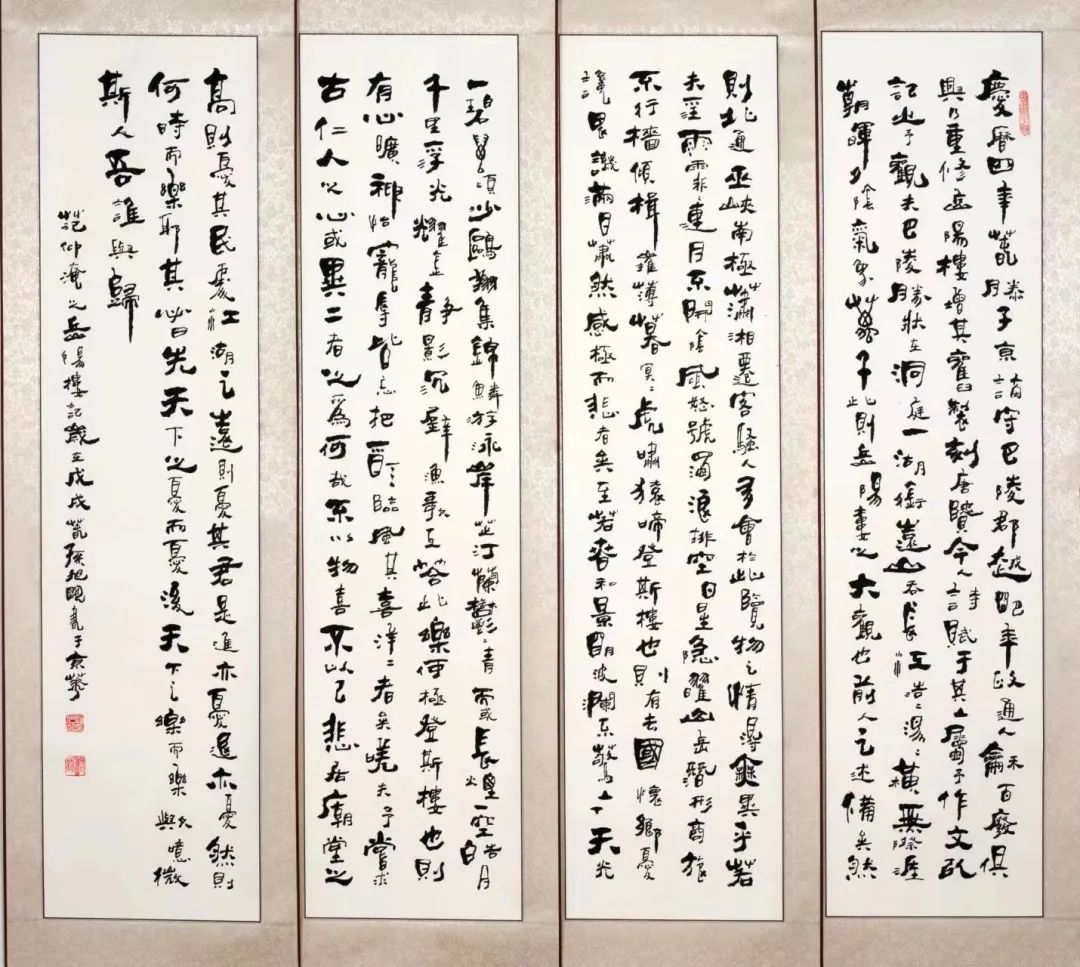 慶曆四年春滕子京謫守巴陵郡越明年政通人和百廢俱
興乃重修岳陽樓增其舊製刻唐賢今人詩賦于其上屬予作文以
記之予觀夫巴陵勝狀在洞庭一湖銜遠山吞長江浩〻湯〻橫無際涯
朝暉夕陰氣象萬千此則岳陽樓之大觀也前人之述備矣然
則北通巫峽南極瀟湘遷客騷人多會於此覽物之情得無異乎若
夫淫雨霏連月不開陰風怒號濁浪排空日星隱曜山岳潛形商旅
不行檣傾楫摧薄暮冥〻虎嘯猿啼登斯樓也則有去國懷鄉憂
讒畏譏滿目蕭然感極而悲者矣至若春和景明波瀾不驚上下天光
一碧萬頃沙鷗翔集錦鱗游泳岸芷汀蘭鬱〻青〻而或長煙一空皓月
千里浮光耀金靜影沉璧漁歌互答此樂何極登斯樓也則
有心曠神怡寵辱皆忘把酒臨風其喜洋〻者矣嗟夫予嘗求
古仁人之心或異二者之爲何哉不以物喜不以己悲居廟堂之
高則憂其民處江湖之遠則憂其君是進亦憂退亦憂然則
何時而樂耶其必曰先天下之憂而憂後天下之樂而樂歟噫微
斯人吾誰與歸
范仲淹之岳陽樓記歲在戊戌春孫旭書于京華